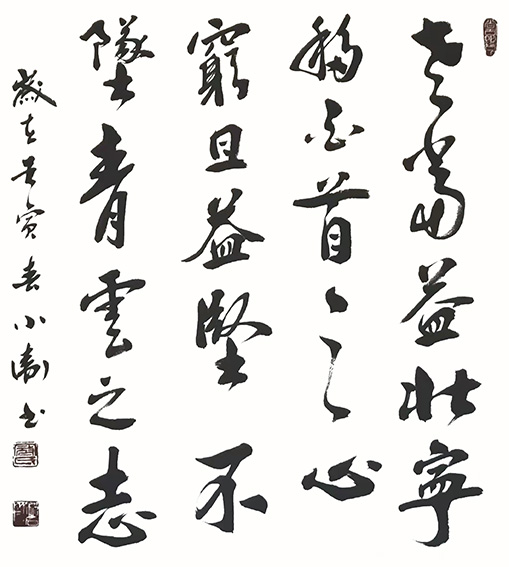 老當益壯寧
移白首之心
窮且益堅不
墜青雲之志
歲在壬寅春小衛書